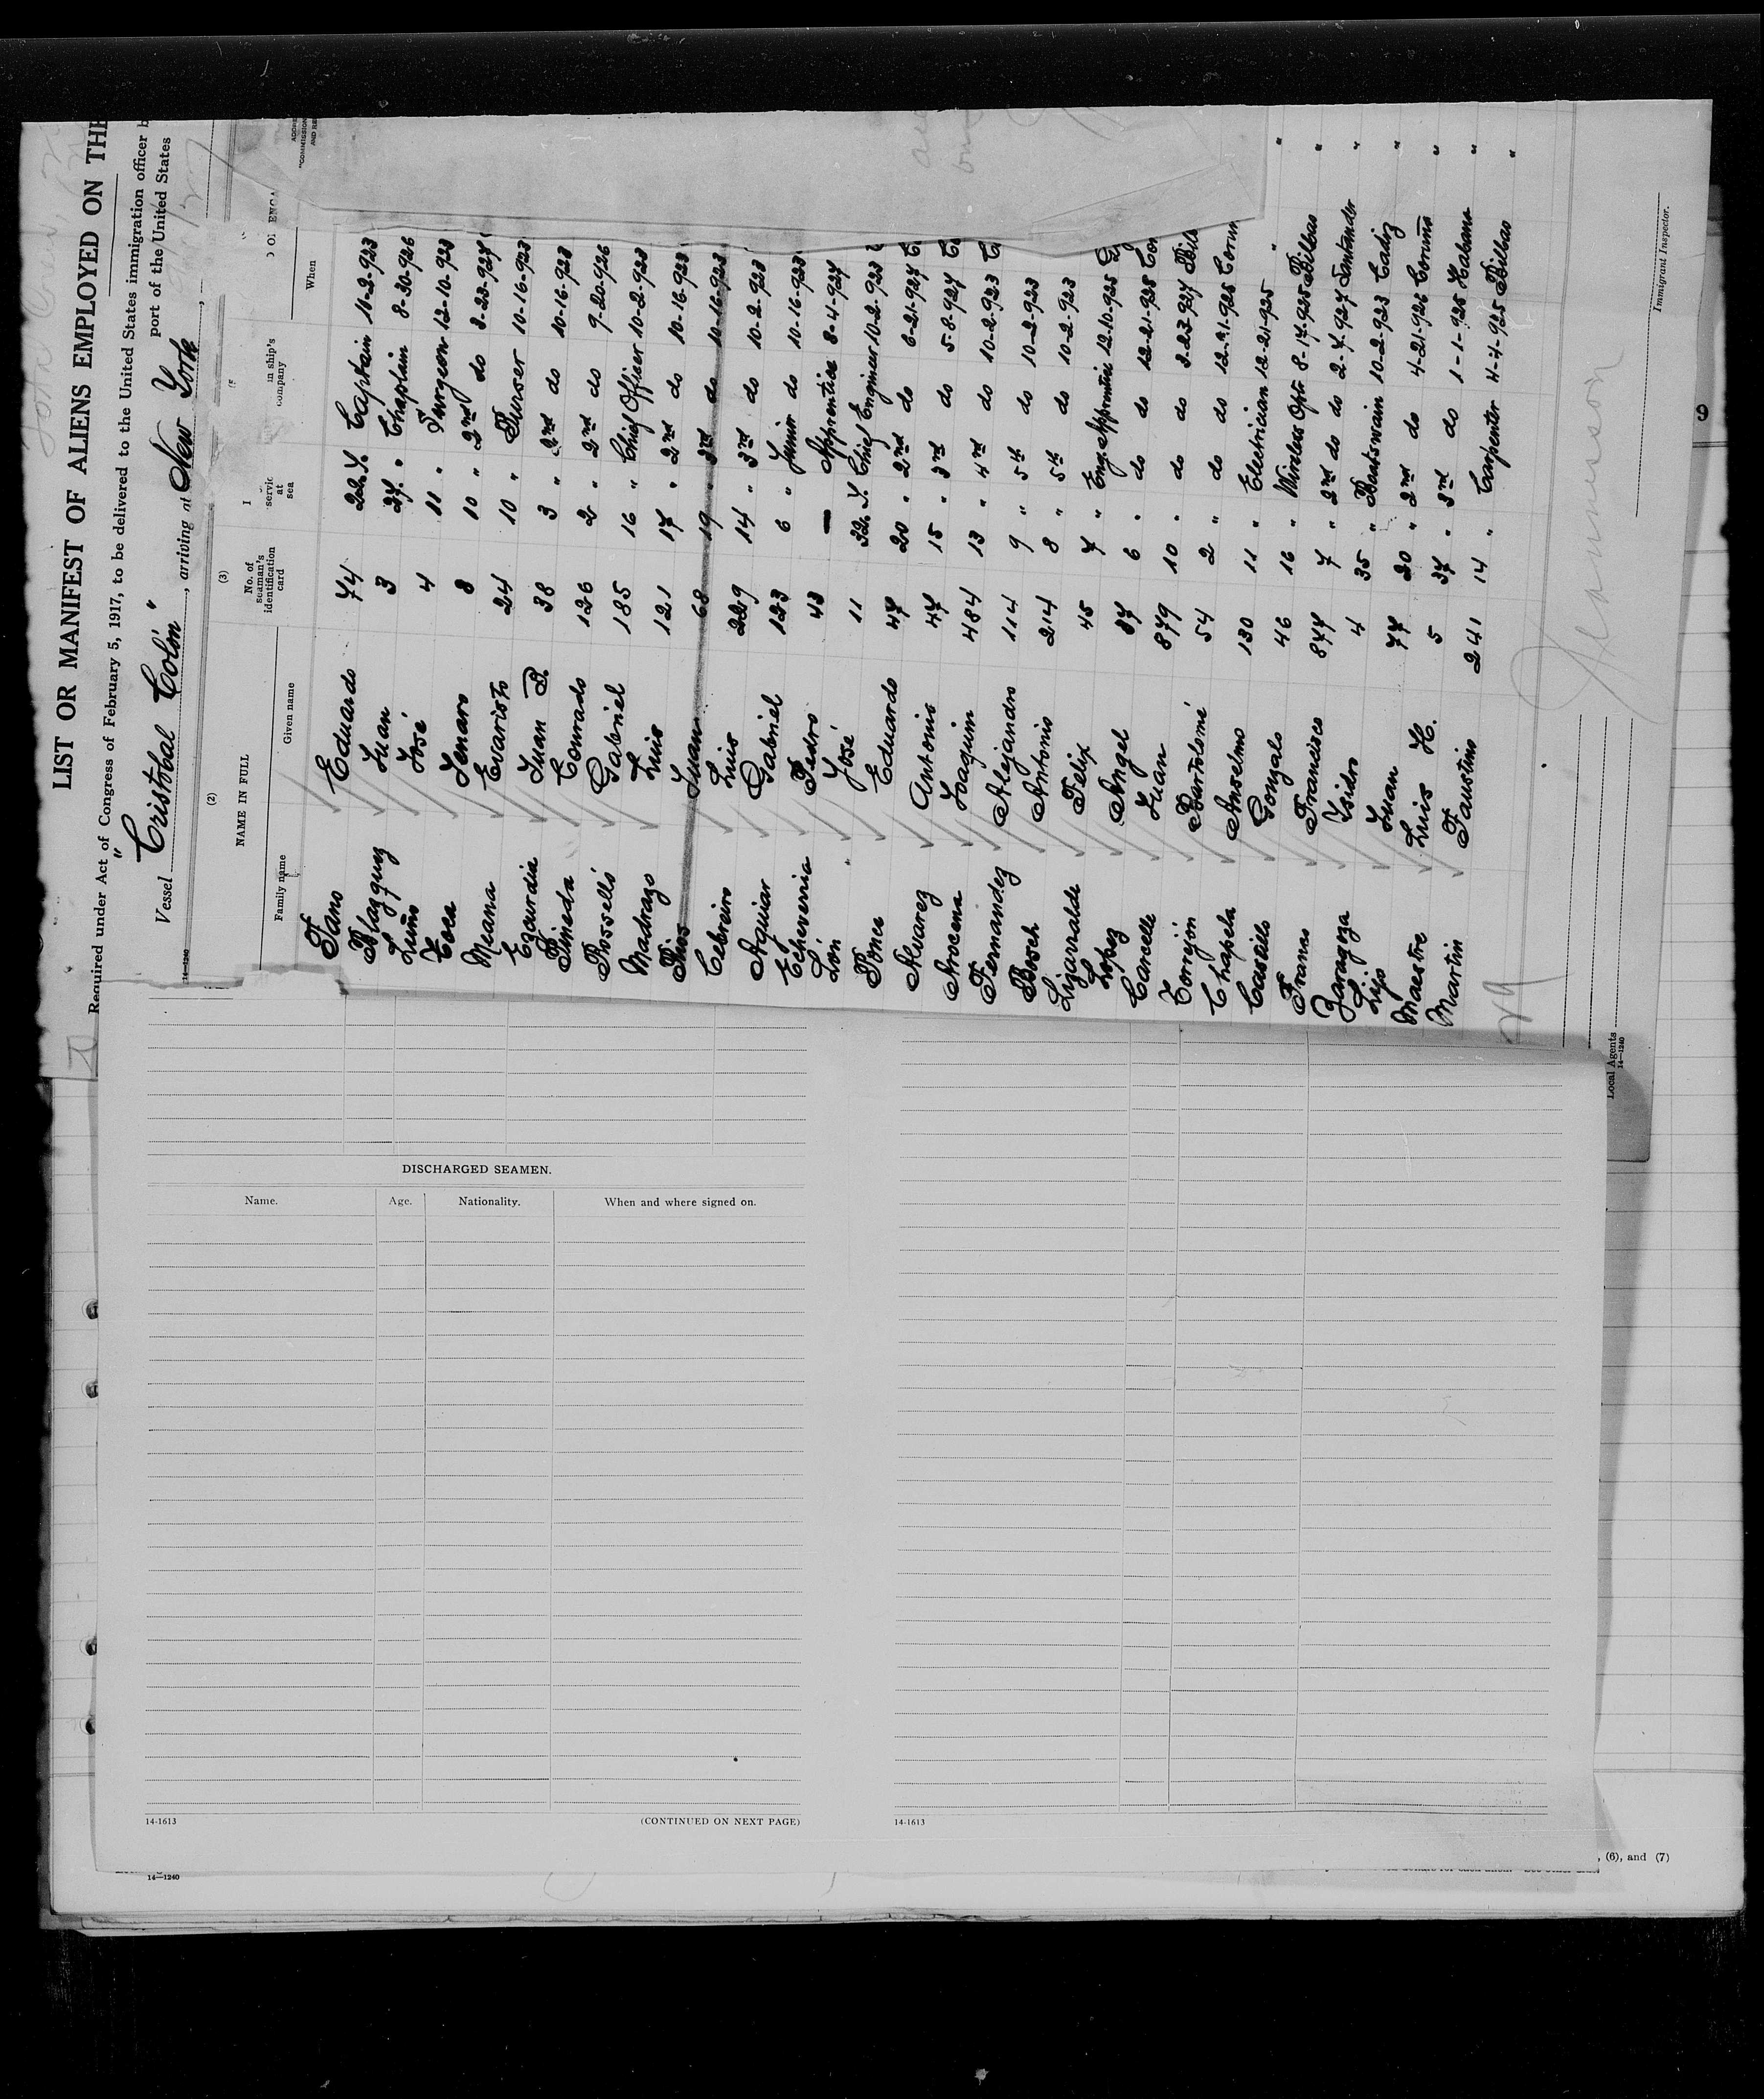 LIST OR MANIFEST OF ALIENS EMPLOYED ON THE
Required under Act of Congress of February 5, 1917, to be delivered to the United States immigration officer b
Vessel " Cristóbal Colón ", arriving at New York, port of the United States
(2) (3)
NAME IN FULL No. of seaman's identification card at sea in ship's company When
Family name Given name
Fano Eduardo 74 22 Y. Captain 11-2-923
Blazquez Juan 3 27 " Chaplain 8-30-926
Luño José 4 11 " Surgeon 12-10-923
Toca Jenaro 8 10 " 2nd do 8-23-927
Meana Evaristo 24 10 " Purser 10-16-923
Egaurdia Juan B. 38 3 " 2nd do 10-16-923
Pineda Conrado 126 2 " 2nd do 9-20-926
Rosselló Gabriel 185 16 " Chief Officer 10-2-923
Madrazo Luis 121 17 " 2nd do 10-16-923
Rios Juan 68 19 " 3rd do 10-16-923
Cebreiro Luis 229 14 " 3rd do 10-2-923
Aguiar Gabriel 123 6 " Junior do 10-16-923
Echeverria Pedro 43 — Apprentice 8-4-927
Lón José 11 32 Y. Chief Engineer 10-2-923
Ponce Eduardo 47 20 " 2nd do 6-21-927
Alvarez Antonio 47 15 " 3rd do 5-8-927
Arocena Joaquin 484 13 " 4rd do 10-2-923
Fernandez Alejandro 114 9 " 5th do 10-2-923
Bosch Antonio 214 8 " 5th do 10-2-923
Lizarralde Felix 45 7 " Eng. Apprentice 12-10-925
Lopez Angel 37 6 " do do 12-21-925
Canelle Juan 879 10 " do do 3-23-927
Torrejón Bartolomé 54 2 " do do 12-21-925 Corun
Chapela Anselmo 130 11 " Electrician 12-21-925 "
Casillo Gonzalo 46 16 " Wireless Optr 8-14-925 Bilbao "
Franco Francisco 877 7 " 2nd do do 2-7-927 Santander "
Zaragoza Ysidro 4 35 " Boatswain 10-2-923 Cadiz "
Lijo Juan 77 20 " 2nd do 4-21-926 Coruña "
Maestre Luis H. 5 37 " 3rd do 1-1-925 Habana "
Martin Faustino 241 14 " Carpenter 4-4-925 Bilbao "
Immigrant Inspector.
Local Agents
14—1240
DISCHARGED SEAMEN.
Name. Age. Nationality. When and where signed on.
14-1613
(CONTINUED ON NEXT PAGE)
14-1613
, (6), and (7)
14—1240